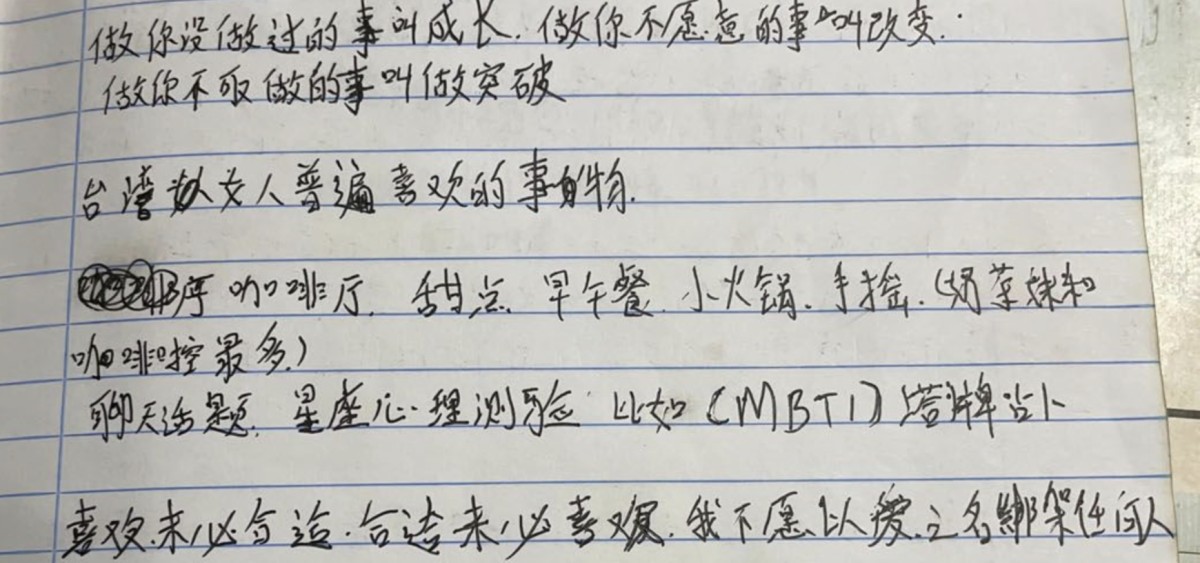 做你没做过的事叫成长. 做你不愿意的事叫改变.
做你不敢做的事叫做突破
台湾女人普遍喜欢的事物.
咖啡厅. 甜点. 早午餐. 小火锅. 手摇. (奶茶妹和
咖啡控最多.)
聊天话题. 星座心理测验 比如 (MBTI) 塔牌占卜
喜欢未必合适. 合适未必喜欢. 我不愿以爱之名绑架任何人